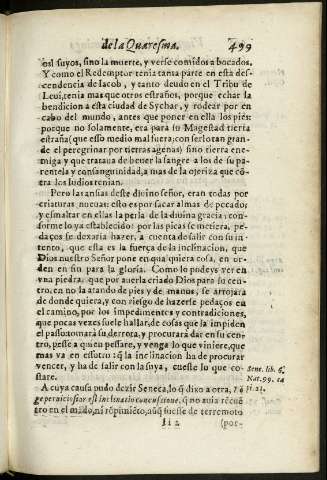 de la Quaresma. 499
osl suyos, sino la muerte, y verse comidos a bocados.
Y como el Redemptor tenia tanta parte en esta des-
cendencia de Iacob, y tanto deudo en el Tribu de
Leui, tenia mas que otros estraños, porque echar la
bendicion a esta ciudad de Sychar, y rodear por en
cabo del mundo, antes que poner en ella los piés:
porque no solamente, era para su Magestad tierra
estraña (que esso medio mal fuera; con ser lo tan gran-
de el peregrinar por tierras agenas) sino tierra ene-
miga y que trataua de beuer la sangre a los de su pa-
rentela y consanguinidad, a mas de la ojeriza que cō
tra los Iudios tenian.
Pero las ansias deste diuino señor, eran todas por
criaturas nueuas: esto es por sacar almas de pecado;
y esmaltar en ellas la perla de la diuina gracia: con-
forme lo ya establecido: por las picas se metiera, pe-
daços se dexaria hazer, a cuenta de salir con su in-
tento, que esta es la fuerça de la inclinacion, que
Dios nuestro Señor pone en qualquiera cosa, en or-
den en sin para la gloria. Como lo podeys ver en
vna piedra, que por auerla criado Dios para su cen-
tro, en no la atando de pies y de manos, se arrojara
de donde quiera, y con riesgo de hazerse pedaços en
el camino, por los impedimentos y contradiciones,
que pocas vezes suele hallar, de cosas que la impiden
el passo tomará su derrota, y procurará dar en su cen-
tro, pesse a quien pessare, y venga lo que viniere, que
mas va en essotro: q̃ la inclinacion ha de procurar
vencer, y ha de salir con la suya, cueste lo que co-
stare.
Sene. lib. 6.
Nat. 99. ca
A cuya causa pudo dezir Seneca, lo q̃ dixo a otra,
ge perniciosior est inclinatio concussione, q̃ no auia recuē
tro en el mūdo, ni rōpimiēto, aūq̃ fuesse de terremoto
Iii 2 (por-